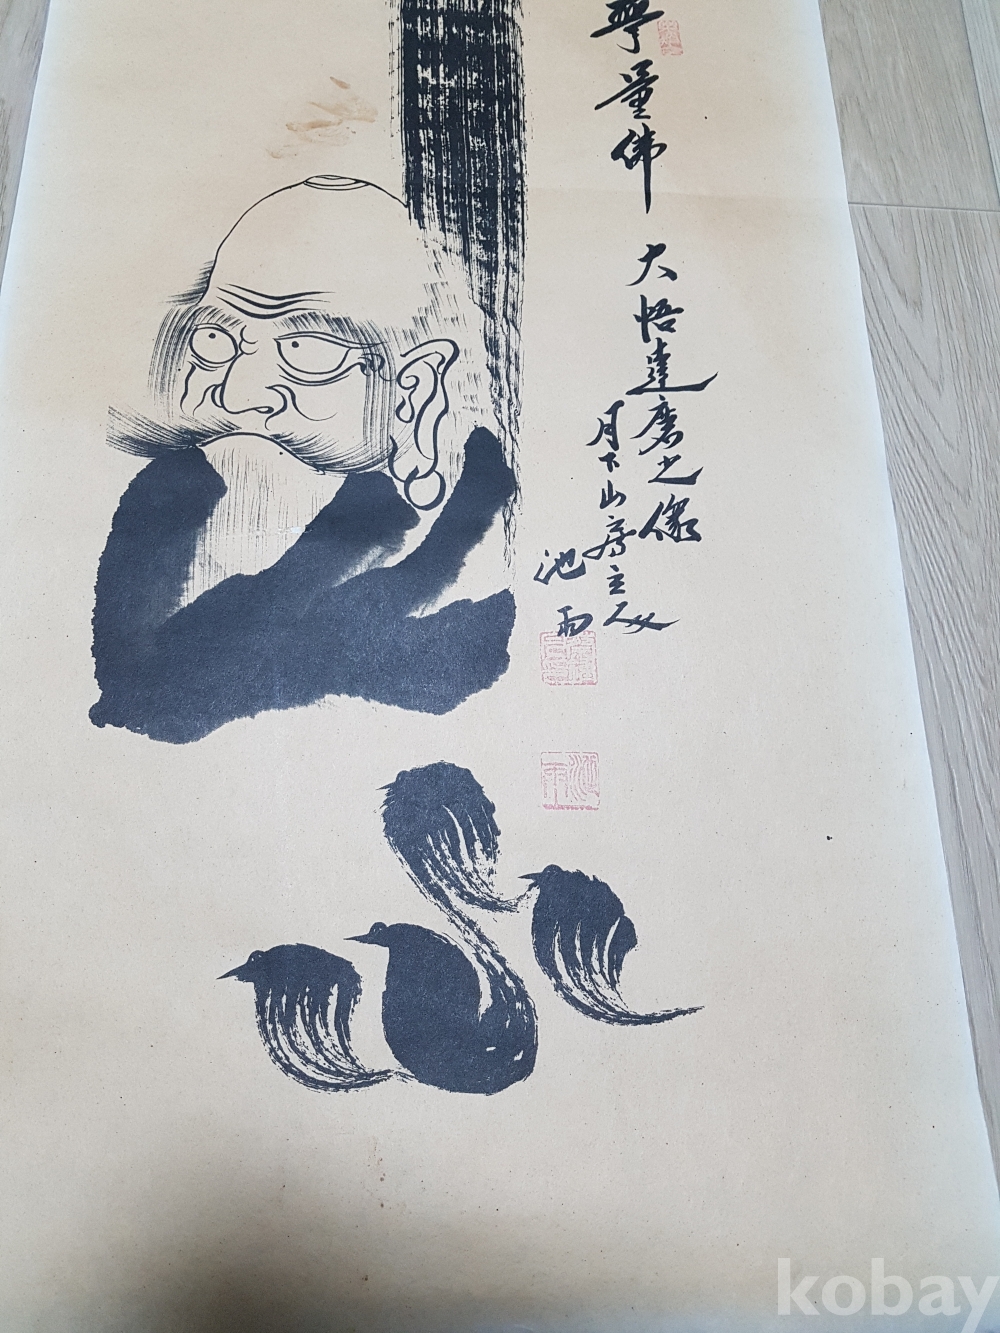 無量佛
大悟達磨之像
月下山房主人
池雨
kobay